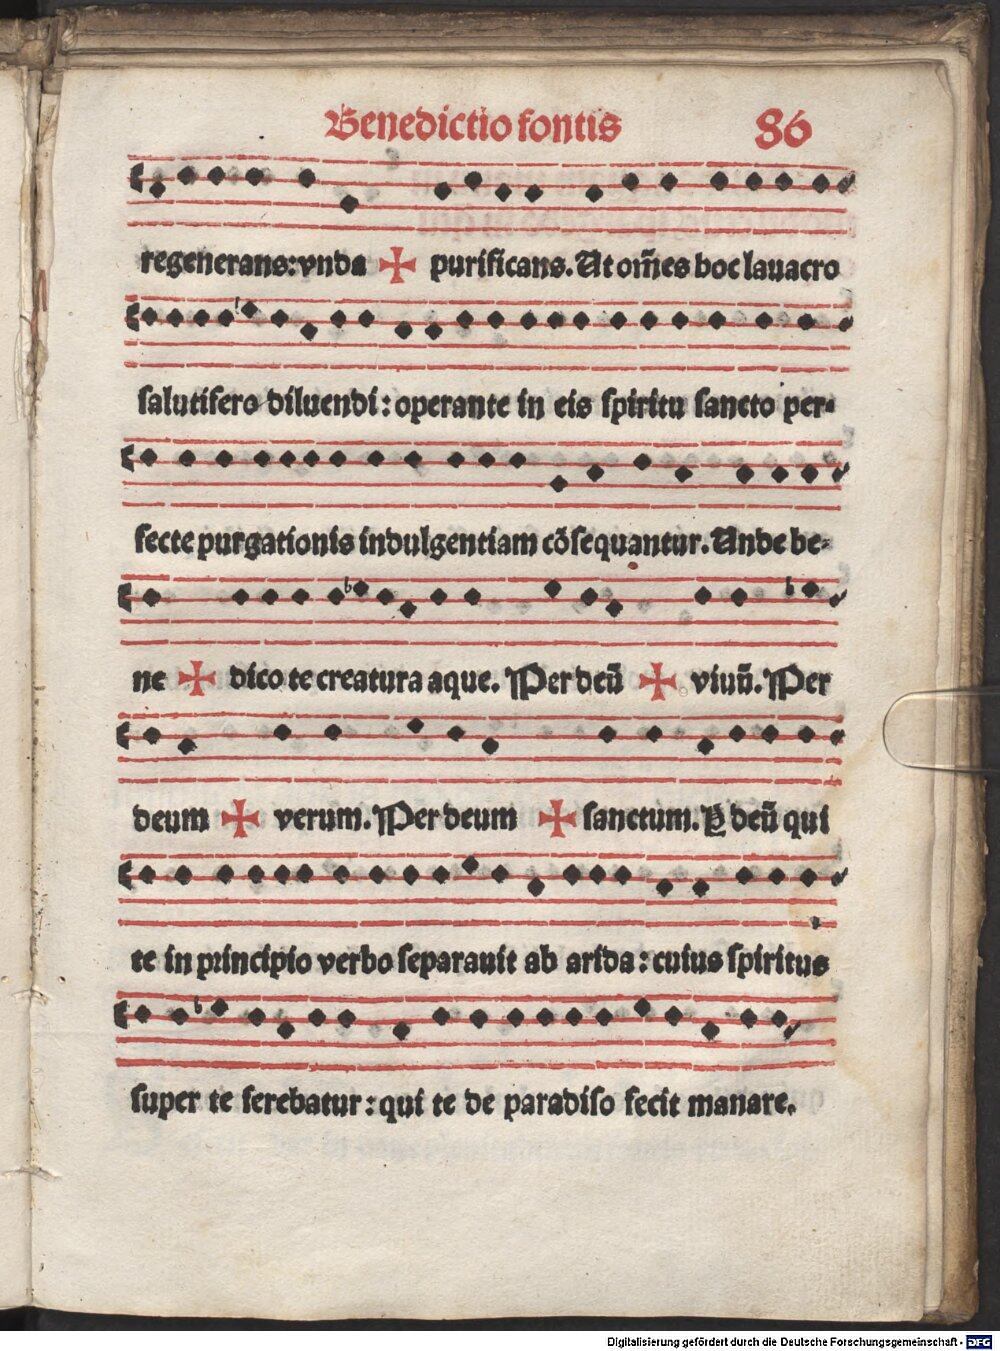 Benedictio fontis 86
regenerans: vnda ✠ purificans. Ut om̃es hoc lauacro
salutifero diluendi: operante in eis spiritu sancto per-
fecte purgationis indulgentiam cõsequantur. Unde be-
ne ✠ dico te creatura aque. Per deũ ✠ viuũ. Per
deum ✠ verum. Per deum ✠ sanctum. Ꝑ deũ qui
te in principio verbo separauit ab arida: cuius spiritus
super te ferebatur: qui te de paradiso fecit manare.
Digitalisierung gefördert durch die Deutsche Forschungsgemeinschaft - DFG